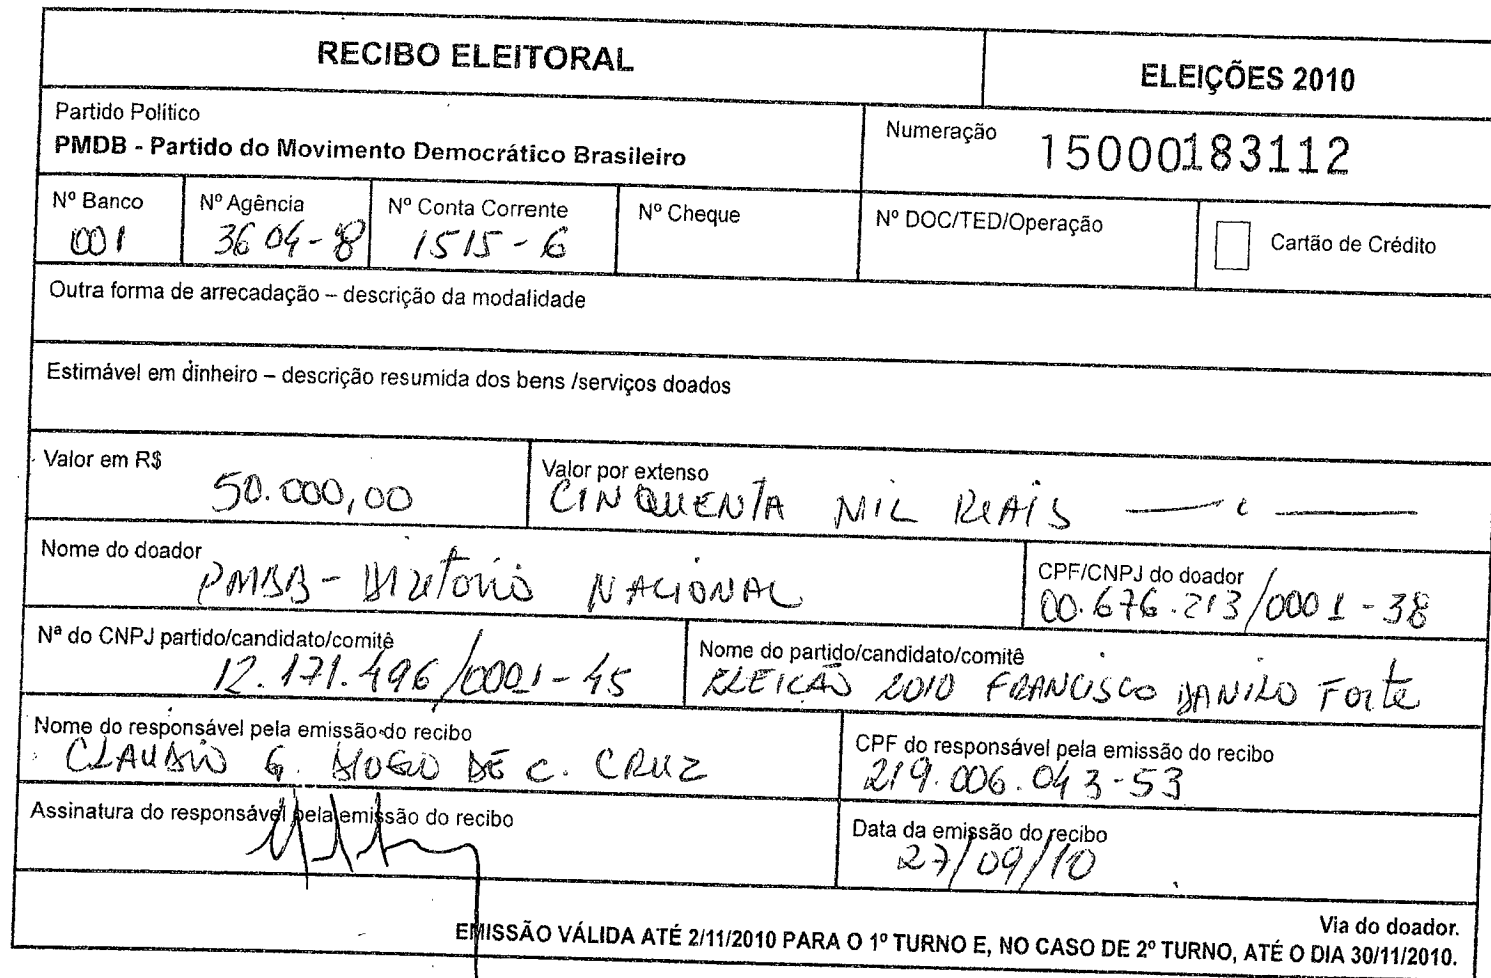 RECIBO ELEITORAL
ELEIÇÕES 2010
Partido Político
PMDB - Partido do Movimento Democrático Brasileiro
Numeração 15000183112
Nº Banco
001
Nº Agência
3604-8
Nº Conta Corrente
1515-6
Nº Cheque
Nº DOC/TED/Operação
Cartão de Crédito
Outra forma de arrecadação – descrição da modalidade
Estimável em dinheiro – descrição resumida dos bens /serviços doados
Valor em R$
50.000,00
Valor por extenso
CINQUENTA MIL REAIS
Nome do doador
PMDB - DIRETORIO NACIONAL
CPF/CNPJ do doador
00.676.213/0001-38
Nª do CNPJ partido/candidato/comitê
12.171.496/0001-45
Nome do partido/candidato/comitê
ELEICAO 2010 FRANCISCO DANILO FORTE
Nome do responsável pela emissão do recibo
CLAUDIO G. DIOGO DE C. CRUZ
CPF do responsável pela emissão do recibo
219.006.043-53
Assinatura do responsável pela emissão do recibo
Data da emissão do recibo
27/09/10
Via do doador.
EMISSÃO VÁLIDA ATÉ 2/11/2010 PARA O 1º TURNO E, NO CASO DE 2º TURNO, ATÉ O DIA 30/11/2010.